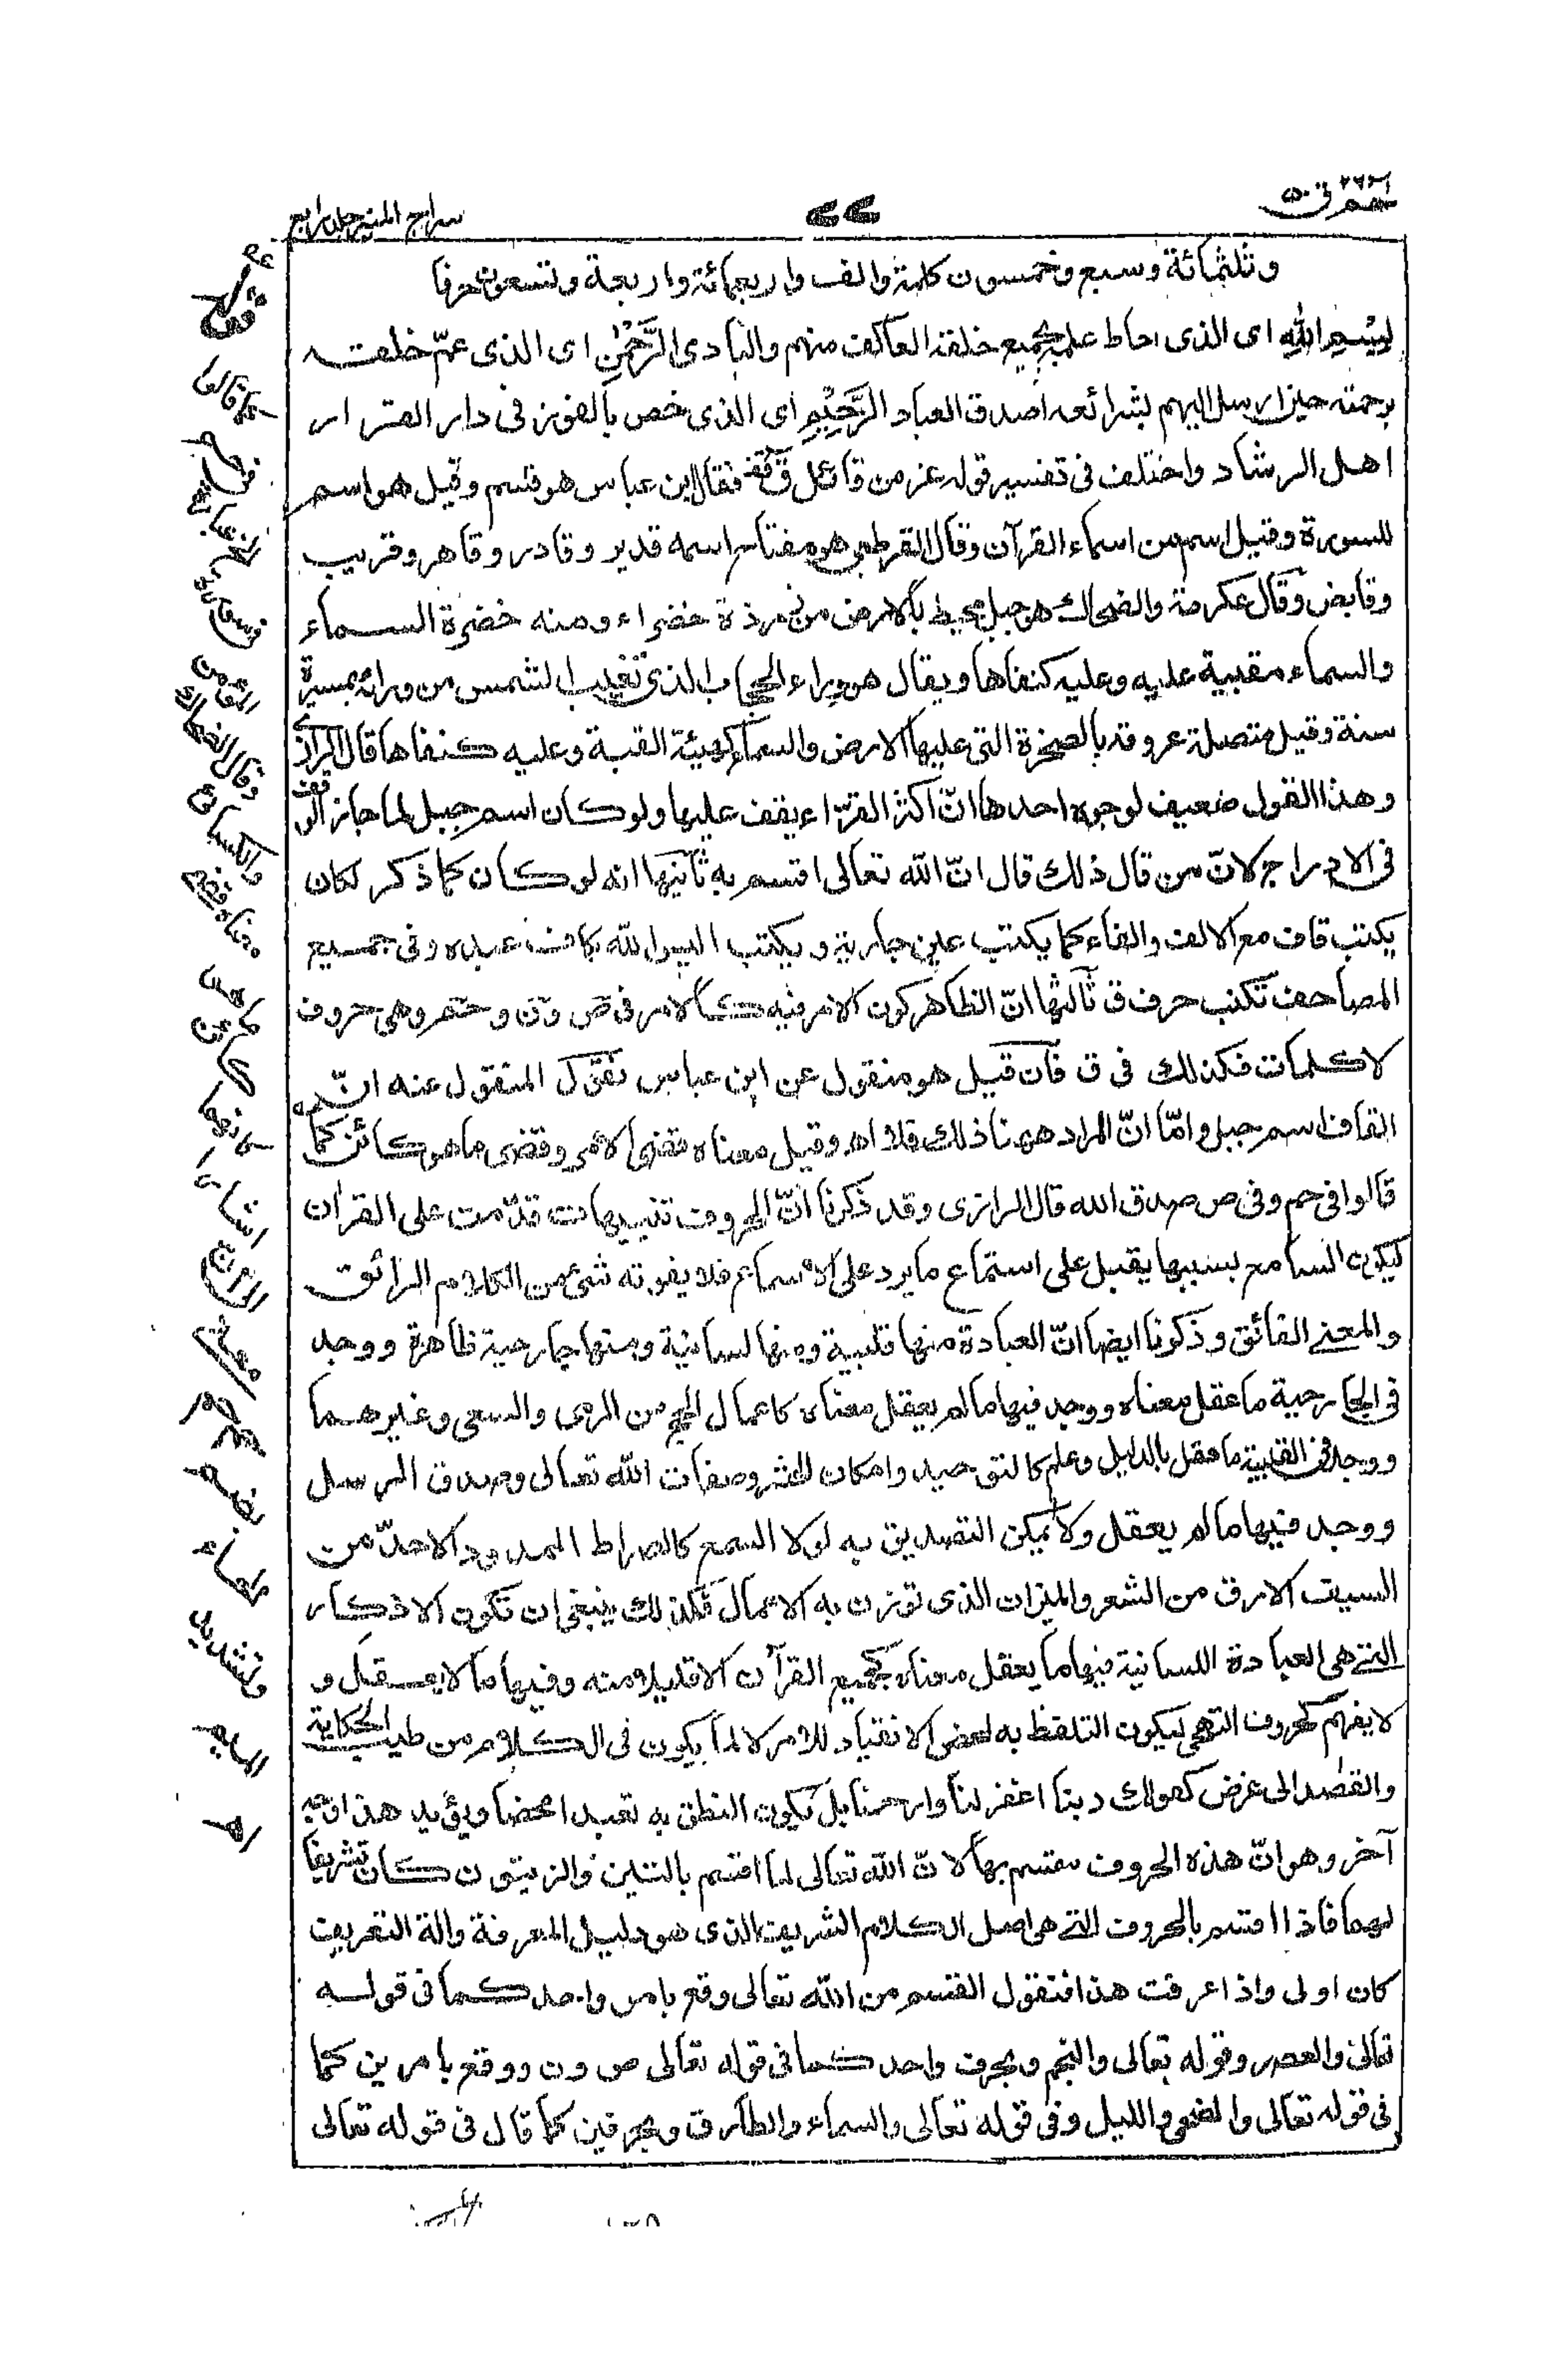 حم ٢٦ ق ٥٠
٧٧
سراج المنير جلد رابع
وثلثمائة وسبع وخمسون كلمة والف واربعمائة واربعة وتسعون حرفا
بِسْمِ اللهِ اى الذى احاط علمه بجميع خلقه العاكف منهم والبادى الرَّحْمٰنِ اى الذى عمّ خلقه
برحمته حين ارسل اليهم بشرائعه اصدق العباد الرَّحِيْمِ اى الذى خص بالفوز فى دار القرار
اهل الرشاد واختلف فى تفسير قوله عز من قائل قٓ فقال ابن عباس هو قسم وقيل هو اسم
للسورة وقيل اسم من اسماء القرآن وقال القرطبى هو مفتاح اسمه قدير وقادر وقاهر وقريب
وقابض وقال عكرمة والضحاك هو جبل محيط بالارض من زمردة خضراء ومنه خضرة السماء
والسماء مقبية عليه وعليه كنفاها ويقال هو وراء الحجاب الذى تغيب الشمس من ورائه بمسيرة
سنة وقيل متصلة عروقه بالصخرة التى عليها الارض والسماء كهيئة القبة وعليه كنفاها قال الرازى
وهذا القول ضعيف لوجوه احدها انّ اكثر القرّاء يقف عليها ولو كان اسم جبل لما جاز الوقف
فى الادراج لانّ من قال ذلك قال انّ الله تعالى اقسم به ثانيها انه لو كان كما ذكر لكان
يكتب قاف مع الالف والفاء كما يكتب عين جارية ويكتب اليس الله بكاف عبده وفى جميع
المصاحف تكتب حرف ق ثالثها انّ الظاهر كون الامر فيه كالامر فى صٓ ونٓ وحٰم وهى حروف
لا كلمات فكذلك فى ق فان قيل هو منقول عن ابن عباس نقول المنقول عنه انّ
القاف اسم جبل وامّا انّ المراد ههنا ذلك فلا اه وقيل معناه قضى الامر وقضى ما هو كائن كما
قالوا فى حم وفى ص صدق الله قال الرازى وقد ذكرنا انّ الحروف تنبيهات قدّمت على القرآن
ليكون السامع بسببها يقبل على استماع ما يرد على الاسماع فلا يفوته شئ من الكلام الرائق
والمعنى الفائق وذكرنا ايضا انّ العبادة منها قلبية ومنها لسانية ومنها جارحية ظاهرة ووجد
فى الجارحية ما عقل معناه ووجد فيها ما لم يعقل معناه كاعمال الحج من الرمى والسعى وغيرهما
ووجد فى القلبية ما عقل بالدليل وعلم كالتوحيد وامكان الحشر وصفات الله تعالى وصدق الرسل
ووجد فيها ما لم يعقل ولا يمكن التصديق به لولا السمع كالصراط الممدود الاحدّ من
السيف الارق من الشعر والميزان الذى توزن به الاعمال فكذلك ينبغى ان تكون الاذكار
التى هى العبادة اللسانية فيها ما يعقل معناه كجميع القرآن الا قليلا منه وفيها ما لا يعقل و
لا يفهم كحروف التهجى ليكون التلفظ به لمحض الانقياد للامر لا لما يكون فى الكلام من طيب الحكاية
والقصد الى غرض كقولك ربنا اغفر لنا وارحمنا بل يكون النطق به تعبدا محضا ويؤيد هذا وجه
آخر وهو انّ هذه الحروف مقسم بها لانّ الله تعالى لما اقسم بالتين والزيتون كان تشريفا
لهما فاذا اقسم بالحروف التى هى اصل الكلام الشريف الذى هو دليل المعرفة والة التعريف
كان اولى واذا عرفت هذا فنقول القسم من الله تعالى وقع بامر واحد كما فى قوله
تعالى والعصر وقوله تعالى والنجم وبحرف واحد كما فى قوله تعالى ص ون ووقع بامرين كما
فى قوله تعالى والضحى والليل وفى قوله تعالى والسماء والطارق وبحرفين كما قال فى قوله تعالى
قوله
كما قالوا
فى حم
وقال الضحاك
والكسائى
معناه قضى
ما هو
كائن
كانهما
اشارا
الى ان
معناه
حم
بضم
الحاء
وتشديد
الميم